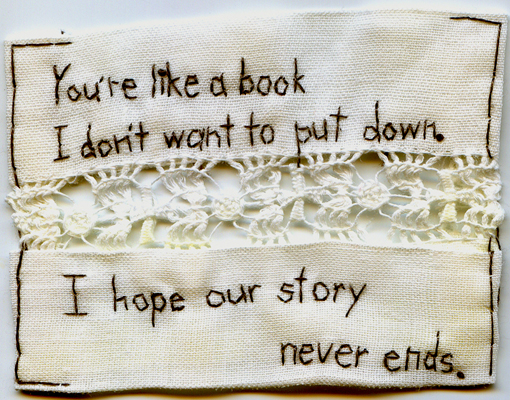 You're like a book
I don't want to put down.
I hope our story
never ends.